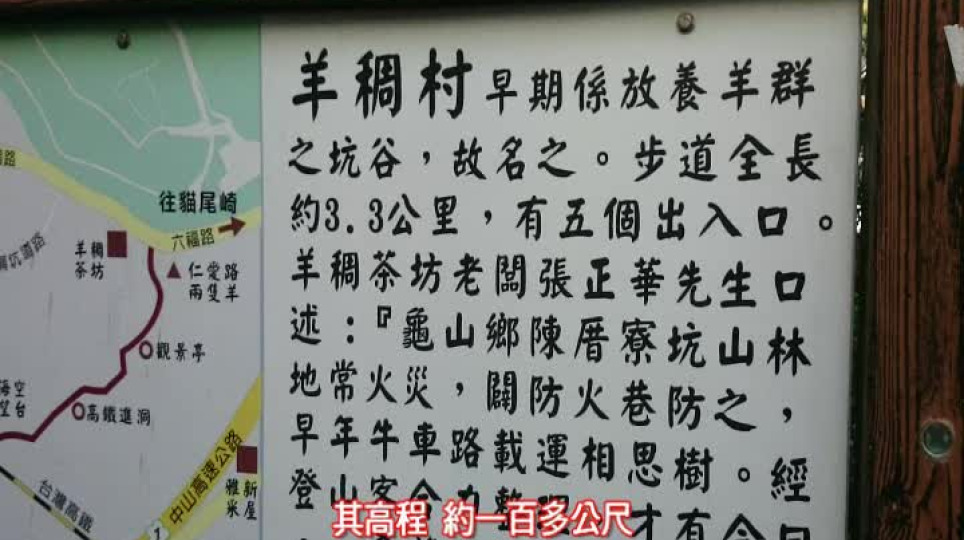 羊稠村早期係放養羊群
之坑谷，故名之。步道全長
約3.3公里，有五個出入口。
羊稠茶坊老闆張正華先生口
述：『龜山鄉陳厝寮坑山林
地常火災，闢防火巷防之，
早年牛車路載運相思樹。經
登山客合力整
才有今日
往貓尾崎
六福路
羊稠
茶坊
仁愛路
兩隻羊
觀景亭
高鐵進洞
中山高速公路
1
台灣高鐵
新屋
雅米
其高程 約一百多公尺